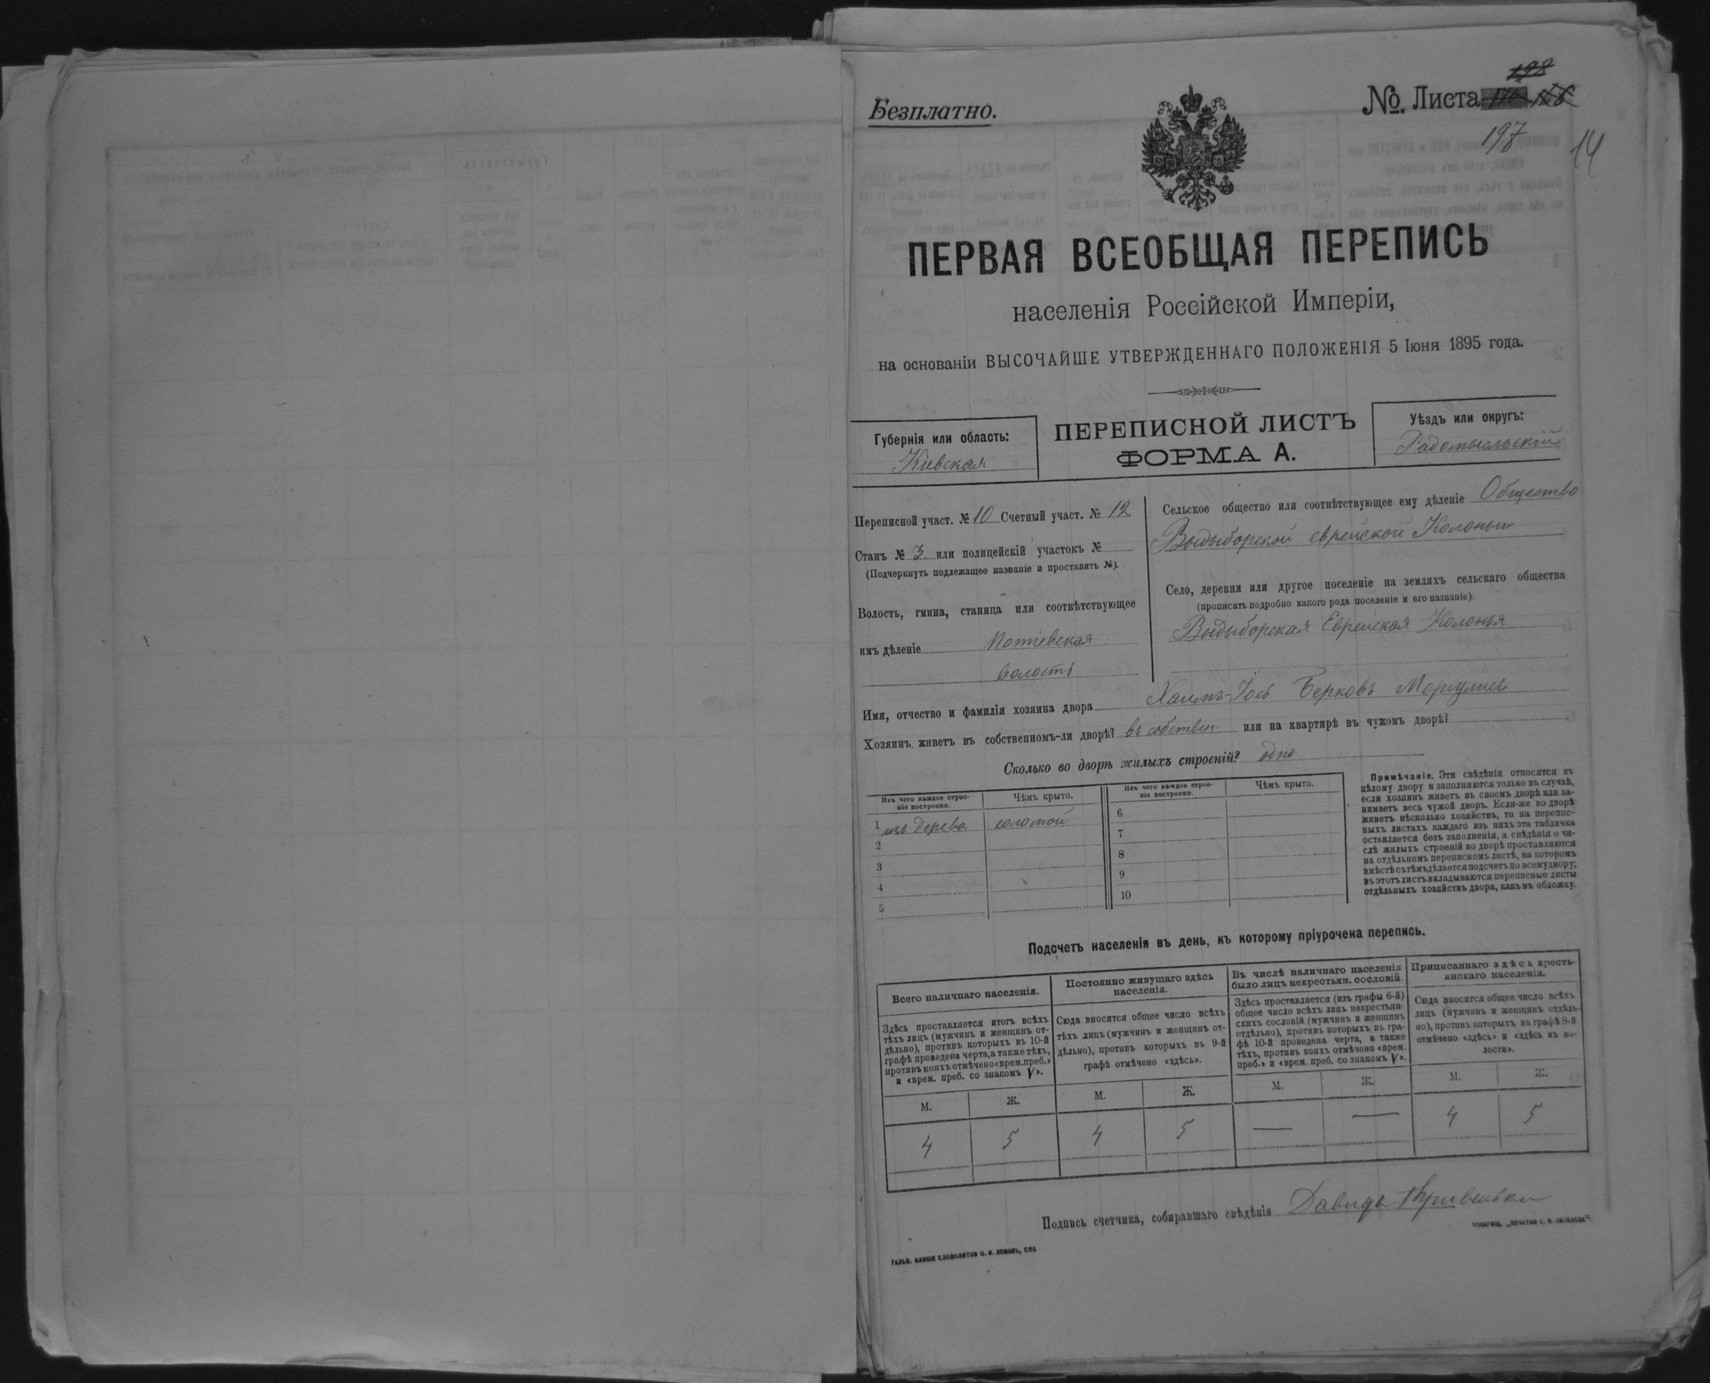 Безплатно.
№. Листа
198
197
14
ПЕРВАЯ ВСЕОБЩАЯ ПЕРЕПИСЬ
населенія Россійской Имперіи,
на основаніи ВЫСОЧАЙШЕ УТВЕРЖДЕННАГО ПОЛОЖЕНІЯ 5 Іюня 1895 года.
Губернія или область:
Кіевская
ПЕРЕПИСНОЙ ЛИСТЪ
ФОРМА А.
Уѣздъ или округъ:
Радомысльскій
Переписной участ. № 10 Счетный участ. № 12
Станъ № 3 или полицейскій участокъ №
(Подчеркнуть подлежащее названіе и проставить №).
Волость, гмина, станица или соотвѣтствующее
имъ дѣленіе Потіевская
волость
Сельское общество или соотвѣтствующее ему дѣленіе Общество
Выдыборской еврейской Колоньи
Село, деревня или другое поселеніе на земляхъ сельскаго общества
(прописать подробно какого рода поселеніе и его названіе).
Выдыборская Еврейская Колонья
Имя, отчество и фамилія хозяина двора Хаимъ-Іось Берковъ Маргулисъ
Хозяинъ живетъ въ собственномъ-ли дворѣ? въ собствен или на квартирѣ въ чужомъ дворѣ?
Сколько во дворѣ жилыхъ строеній? одно
Изъ чего каждое строе-
ніе построено.
Чѣмъ крыто.
1 изъ дерева соломой
2
3
4
5
Изъ чего каждое строе-
ніе построено.
Чѣмъ крыто.
6
7
8
9
10
Примѣчаніе. Эти свѣдѣнія относятся къ
цѣлому двору и заполняются только въ случаѣ,
если хозяинъ живетъ въ своемъ дворѣ или за-
нимаетъ весь чужой дворъ. Если-же во дворѣ
живетъ нѣсколько хозяйствъ, то на перепис-
ныхъ листахъ каждаго изъ нихъ эта табличка
оставляется безъ заполненія, а свѣдѣнія о чи-
слѣ жилыхъ строеній во дворѣ проставляются
на отдѣльномъ переписномъ листѣ, на которомъ
вмѣстѣ съ тѣмъ дѣлается подсчетъ по всему двору;
въ этотъ листъ вкладываются переписные листы
отдѣльныхъ хозяйствъ двора, какъ въ обложку.
Подсчетъ населенія въ день, къ которому пріурочена перепись.
Всего наличнаго населенія.
Здѣсь проставляется итогъ всѣхъ
тѣхъ лицъ (мужчинъ и женщинъ от-
дѣльно), противъ которыхъ въ 10-й
графѣ проведена черта, а также тѣхъ,
противъ коихъ отмѣчено «врем. преб.»
и «врем. преб. со знакомъ V».
М. Ж.
4 5
Постоянно живущаго здѣсь
населенія.
Сюда вносится общее число всѣхъ
тѣхъ лицъ (мужчинъ и женщинъ от-
дѣльно), противъ которыхъ въ 9-й
графѣ отмѣчено «здѣсь».
М. Ж.
4 5
Въ числѣ наличнаго населенія
было лицъ некрестьян. сословій.
Здѣсь проставляется (изъ графы 6-й)
общее число всѣхъ лицъ некрестьян-
скихъ сословій (мужчинъ и женщинъ
отдѣльно), противъ которыхъ въ гра-
фѣ 10-й проведена черта, а также
тѣхъ, противъ коихъ отмѣчено «врем.
преб.» и «врем. преб. со знакомъ V».
М. Ж.
— —
Приписаннаго здѣсь кресть-
янскаго населенія.
Сюда вносится общее число всѣхъ
лицъ (мужчинъ и женщинъ отдѣль-
но), противъ которыхъ въ графѣ 8-й
отмѣчено «здѣсь» и «здѣсь къ во-
лости».
М. Ж.
4 5
Подпись счетчика, собиравшаго свѣдѣнія Давидъ
ГАЛЬВ. КЛИШИ СЛОВОЛИТНИ О. И. ЛЕМАНЪ, СПБ
ТОВАРИЩ. „ПЕЧАТНЯ С. П. ЯКОВЛЕВА".